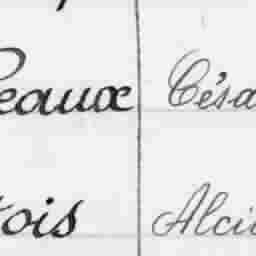 eaux Césa
tois Alci